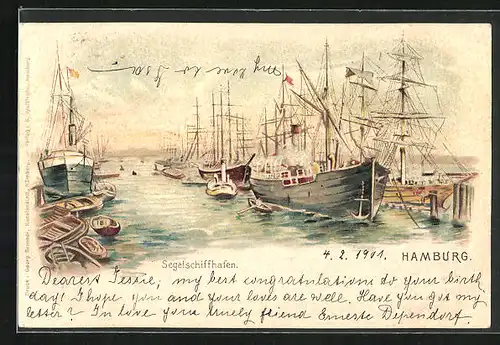 my love to Isa
Segelschiffhafen.
4. 2. 1901. HAMBURG.
Dearest Jessie, my best congratulations to your birth
day! I hope you and your loves are well. Have you got my
letter? In love your truely friend Erneste Dependorf.